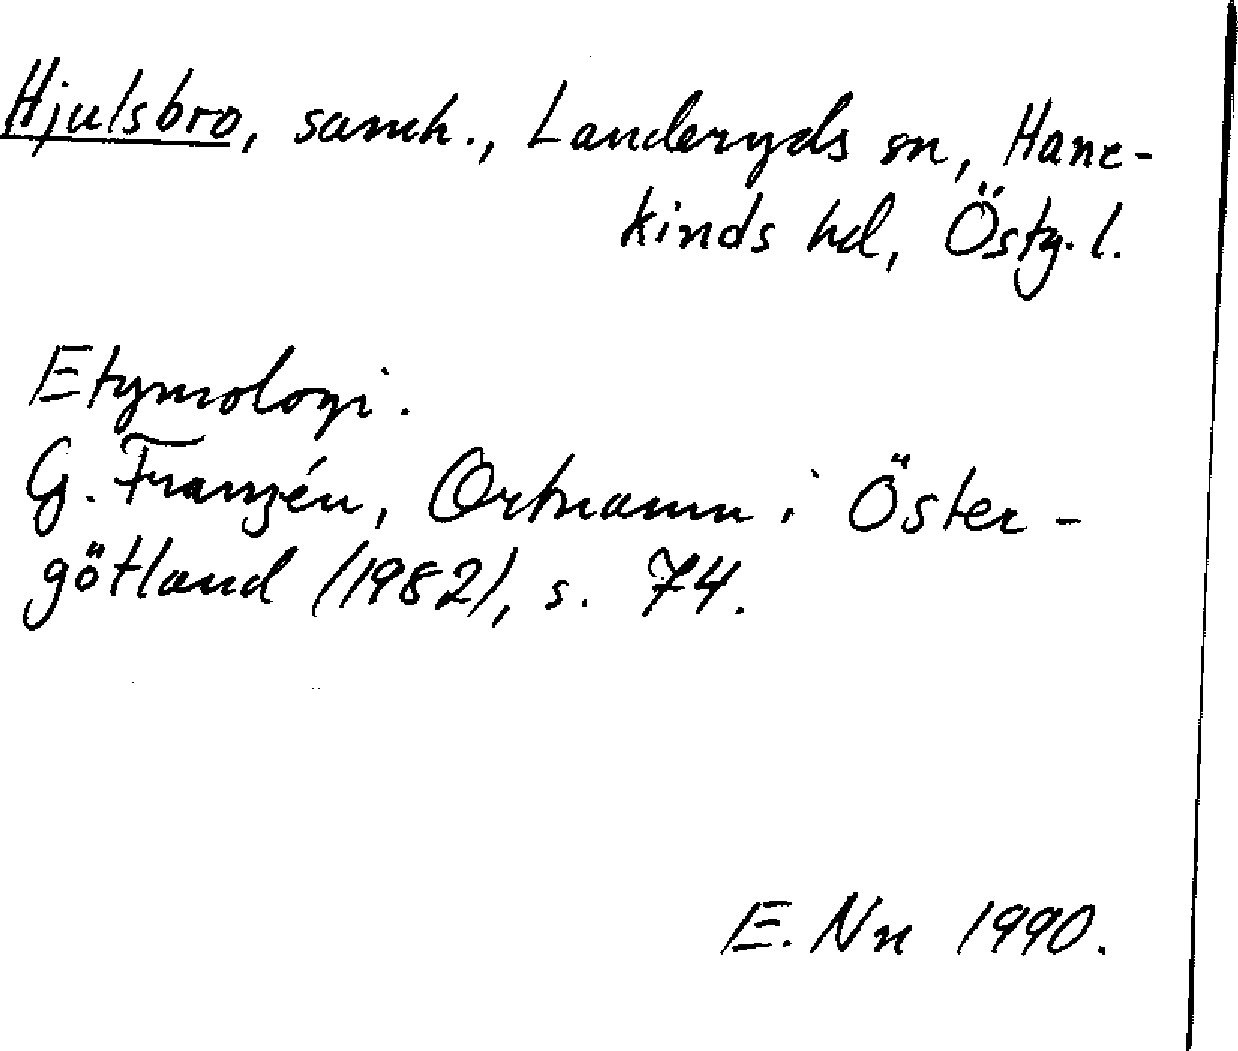 Hjulsbro, samh., Landeryds sn, Hane-
kinds hd, Östg. l.
Etymologi.
G. Franzén, Ortnamn i Öster-
götland (1982), s. 74.
E. Nn 1990.